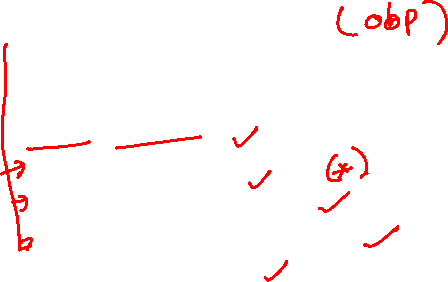 (obp)
(*)